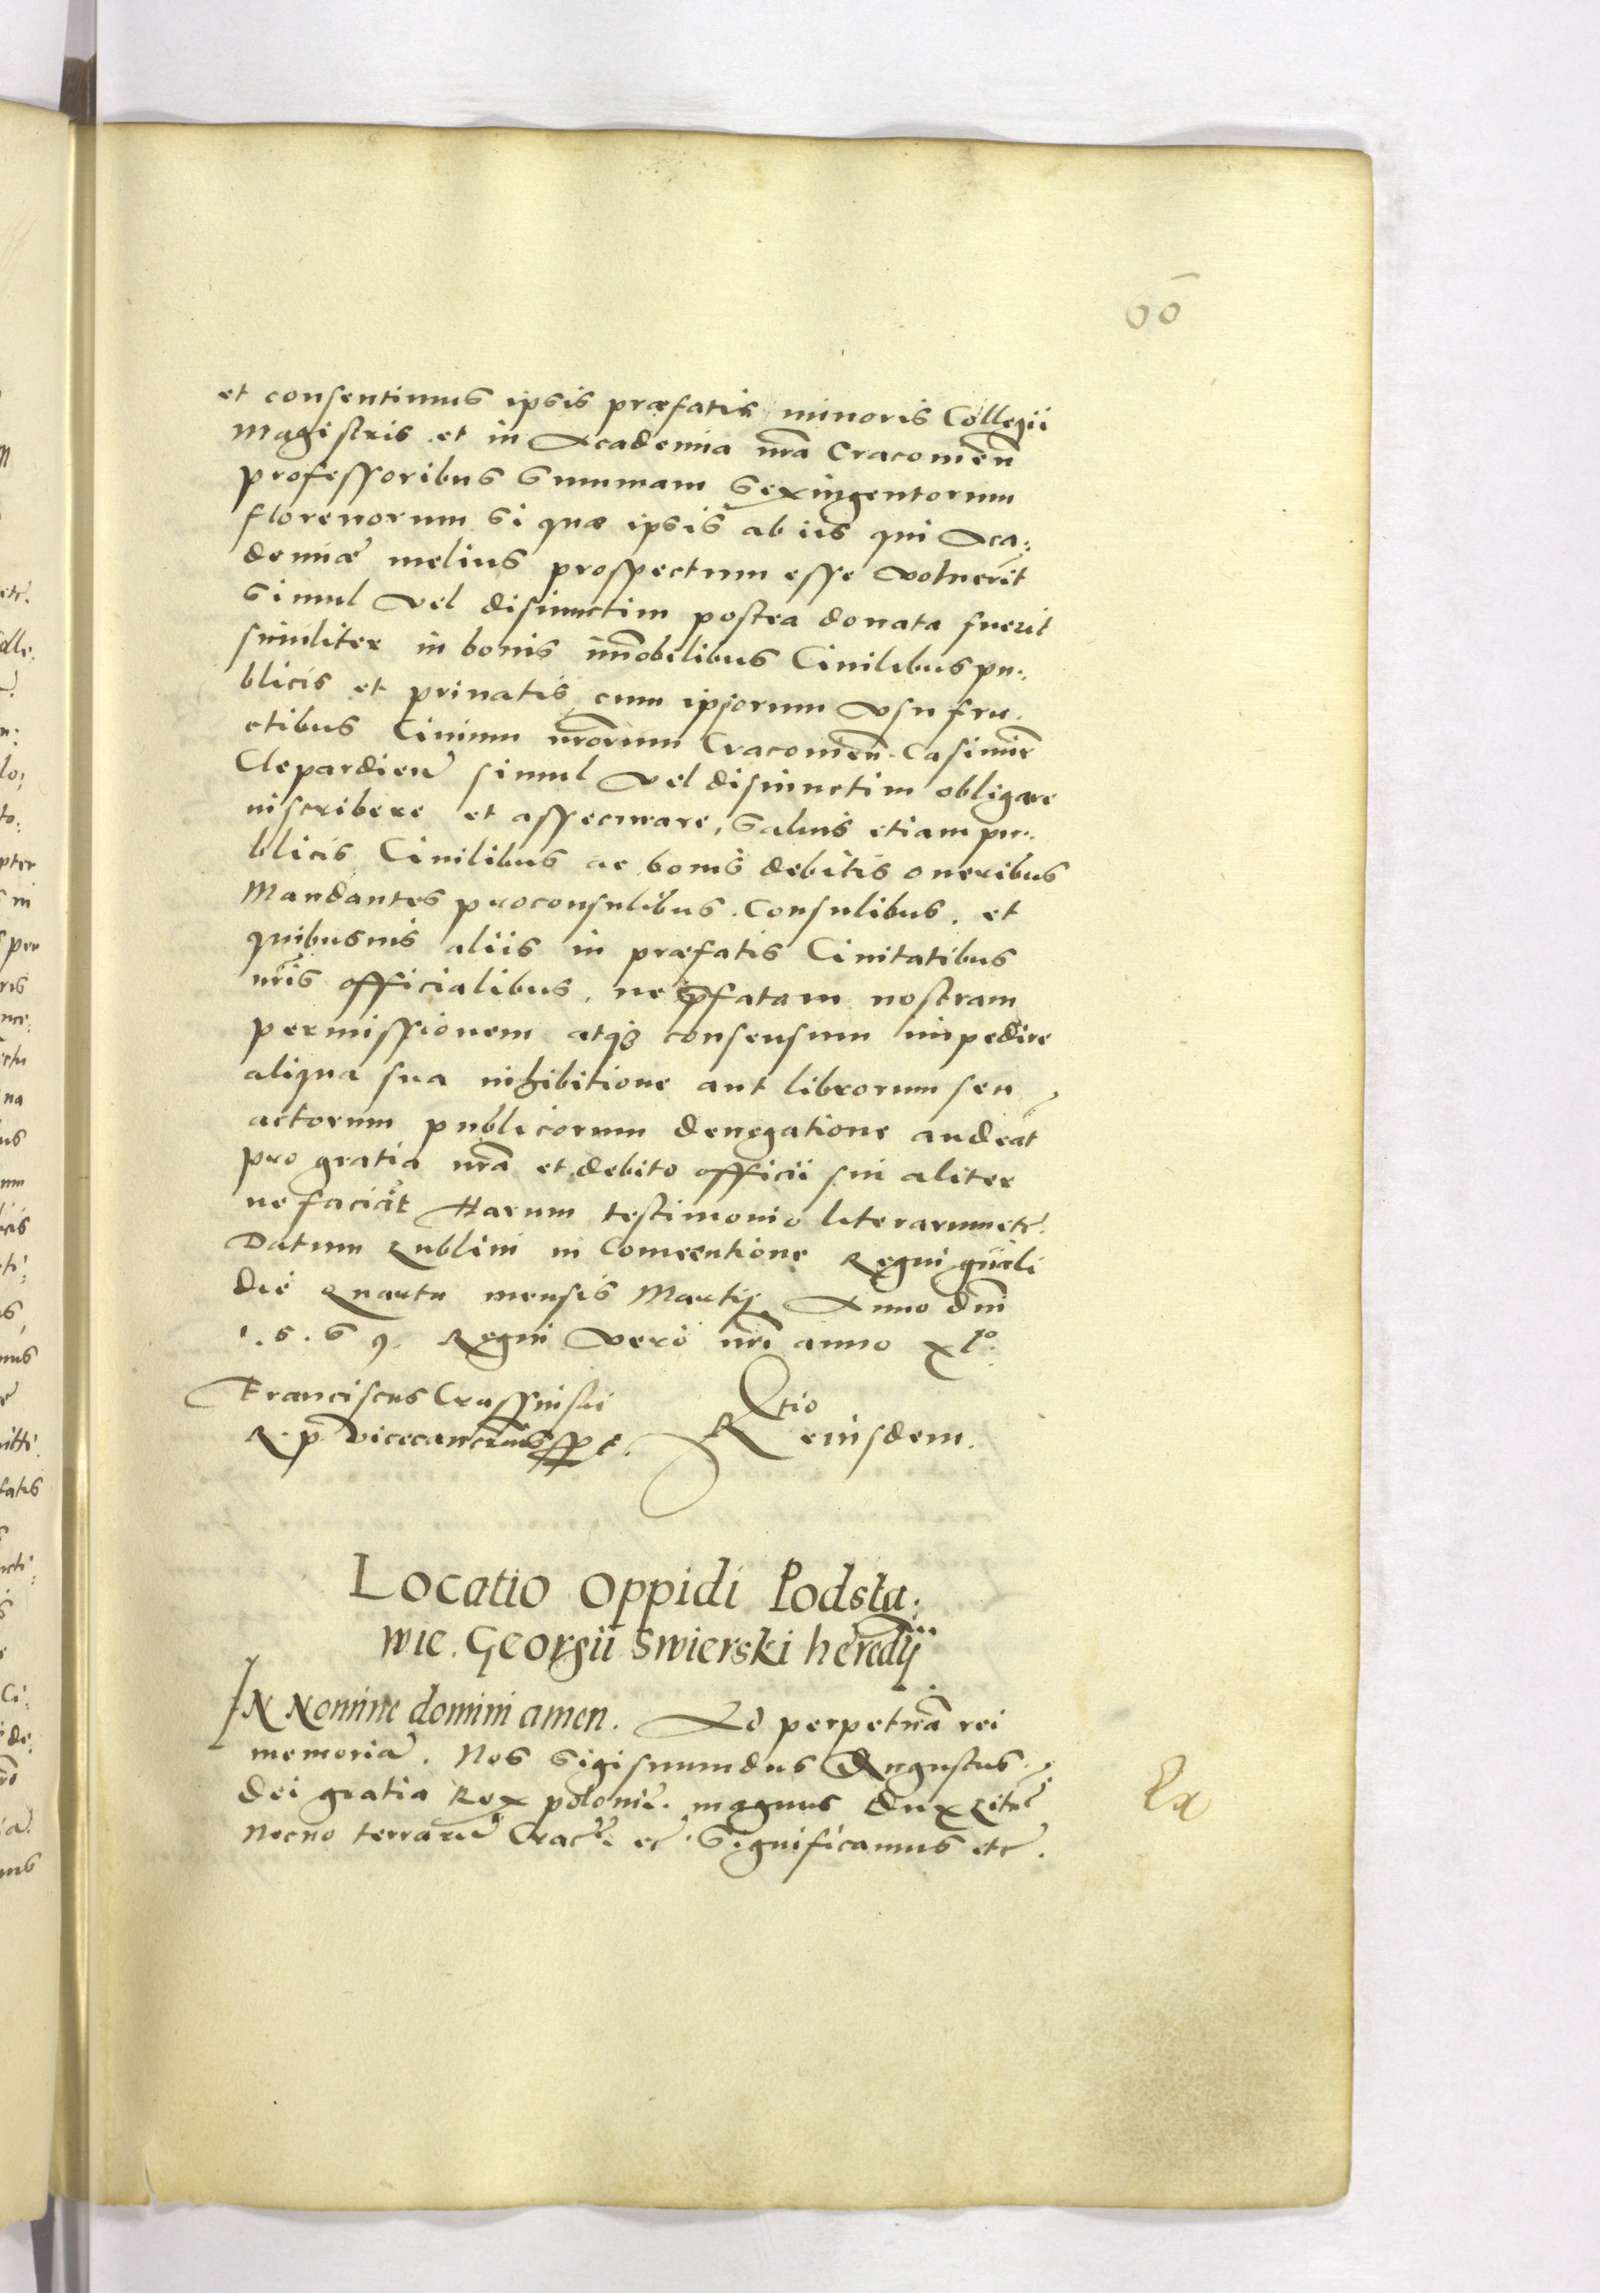 60
et consentimus ipsis præfatis minoris Collegii
Magistris et in Academia nr̃a Cracovień
professoribus Summam Sexingentorum
florenorum si quæ ipsis ab iis qui Aca:
demiæ melius prospectum esse voluerĩt
Simul vel disiunctim postea donata fuerit
similiter in bonis im̃obilibus Civilibus pu:
blicis et privatis cum ipsorum vsu fru:
ctibus Civium nr̃orum Cracovień. Casimir̃
Clepardień simul vel disiunctim obligare
inscribere et assecurare, Salvis etiam pu:
blicis Civilibus ac bonis debitis oneribus
Mandantes proconsulibus. Consulibus. et
quibusvis aliis in præfatis Civitatibus
nr̃is officialibus. ne p̃fatam nostram
permissionem atq₃ consensum impedire
aliqua sua inhibitione aut librorum seu
actorum publicorum denegatione audeãt
pro gratia nr̃a et debito officii sui aliter
ne faciãt Harum testimonio literarum etc̃.
Datum Lublini in Conventione Regni gñali
die Quarta mensis Martij Anno dñi
1.5.6 9. Regni vero nr̃i anno xlᵒ.
Franciscus Crassinski
R. p. Vicecancr̃ius sspt.
Rtio
eiusdem.
Locatio Oppidi Podsta:
wie. Georgii Swierski heredij
IN Nomine domini amen. Ad perpetuã rei
memoriã. Nos Sigismundus Augustus
dei gratia Rex poloniæ. magnus dux Lituæ
Necno terrarũ Crac̃. ec̃. Significamus etc̃.